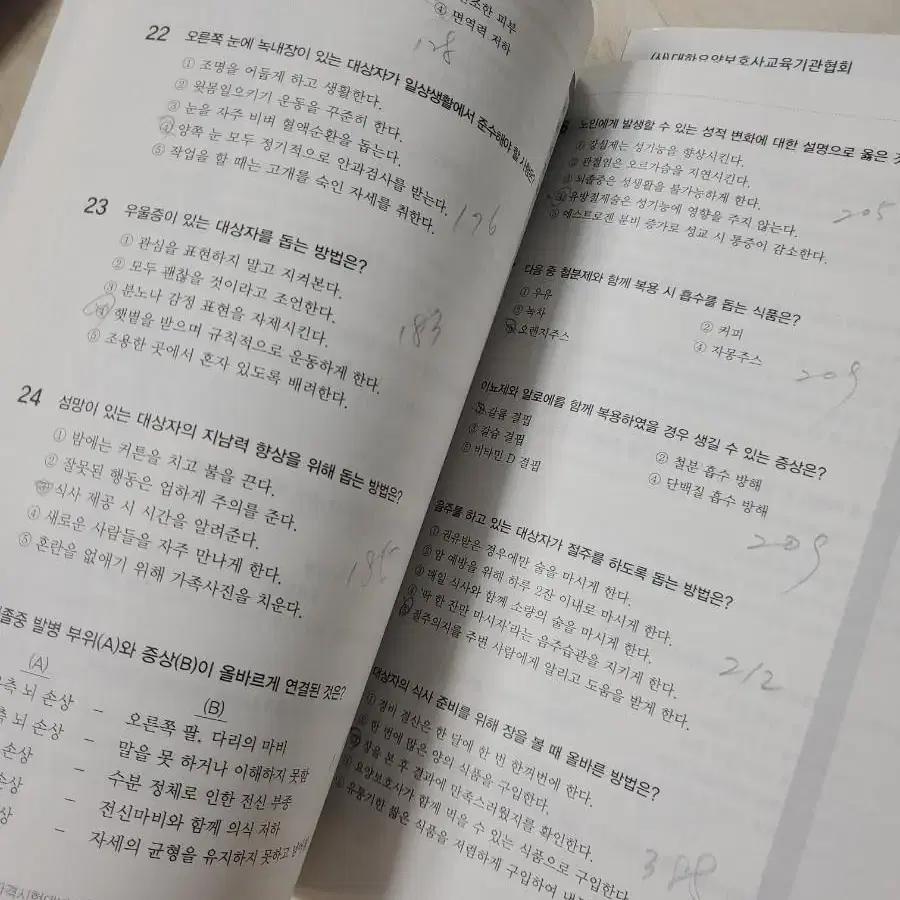 조한 피부
④ 면역력 저하
128
22 오른쪽 눈에 녹내장이 있는 대상자가 일상생활에서 준수해야 할 사항은?
① 조명을 어둡게 하고 생활한다.
② 윗몸일으키기 운동을 꾸준히 한다.
③ 눈을 자주 비벼 혈액순환을 돕는다.
④ 양쪽 눈 모두 정기적으로 안과검사를 받는다.
⑤ 작업을 할 때는 고개를 숙인 자세를 취한다.
176
23 우울증이 있는 대상자를 돕는 방법은?
① 관심을 표현하지 말고 지켜본다.
② 모두 괜찮을 것이라고 조언한다.
③ 분노나 감정 표현을 자제시킨다.
④ 햇볕을 받으며 규칙적으로 운동하게 한다.
⑤ 조용한 곳에서 혼자 있도록 배려한다.
183
24 섬망이 있는 대상자의 지남력 향상을 위해 돕는 방법은?
① 밤에는 커튼을 치고 불을 끈다.
② 잘못된 행동은 엄하게 주의를 준다.
③ 식사 제공 시 시간을 알려준다.
④ 새로운 사람들을 자주 만나게 한다.
⑤ 혼란을 없애기 위해 가족사진을 치운다.
졸중 발병 부위(A)와 증상(B)이 올바르게 연결된 것은?
(A) (B)
측 뇌 손상 – 오른쪽 팔, 다리의 마비
측 뇌 손상 – 말을 못 하거나 이해하지 못함
손상 – 수분 정체로 인한 전신 부종
손상 – 전신마비와 함께 의식 저하
상 – 자세의 균형을 유지하지 못하고
(사)대한요양보호사교육기관협회
노인에게 발생할 수 있는 성적 변화에 대한 설명으로 옳은 것
① 강심제는 성기능을 향상시킨다.
② 관절염은 오르가슴을 지연시킨다.
뇌졸중은 성생활을 불가능하게 한다.
④ 유방절제술은 성기능에 영향을 주지 않는다.
⑤ 에스트로겐 분비 증가로 성교 시 통증이 감소한다.
205
다음 중 철분제와 함께 복용 시 흡수를 돕는 식품은?
① 우유 ② 커피
③ 녹차 ④ 자몽주스
⑤ 오렌지주스
209
이뇨제와 알로에를 함께 복용하였을 경우 생길 수 있는 증상은?
① 칼륨 결핍 ② 철분 흡수 방해
③ 칼슘 결핍 ④ 단백질 흡수 방해
⑤ 비타민 D 결핍
209
음주를 하고 있는 대상자가 절주를 하도록 돕는 방법은?
① 권유받은 경우에만 술을 마시게 한다.
② 암 예방을 위해 하루 2잔 이내로 마시게 한다.
③ 매일 식사와 함께 소량의 술을 마시게 한다.
④ '딱 한 잔만 마시자'라는 음주습관을 지키게 한다.
⑤ 절주의지를 주변 사람에게 알리고 도움을 받게 한다.
212
대상자의 식사 준비를 위해 장을 볼 때 올바른 방법은?
① 경비 결산은 한 달에 한 번 한꺼번에 한다.
한 번에 많은 양의 식품을 구입한다.
장을 본 후 결과에 만족스러웠지를 확인한다.
요양보호사가 함께 먹을 수 있는 식품으로 구입한다.
유통기한 짧은 식품을 저렴하게 구입하여